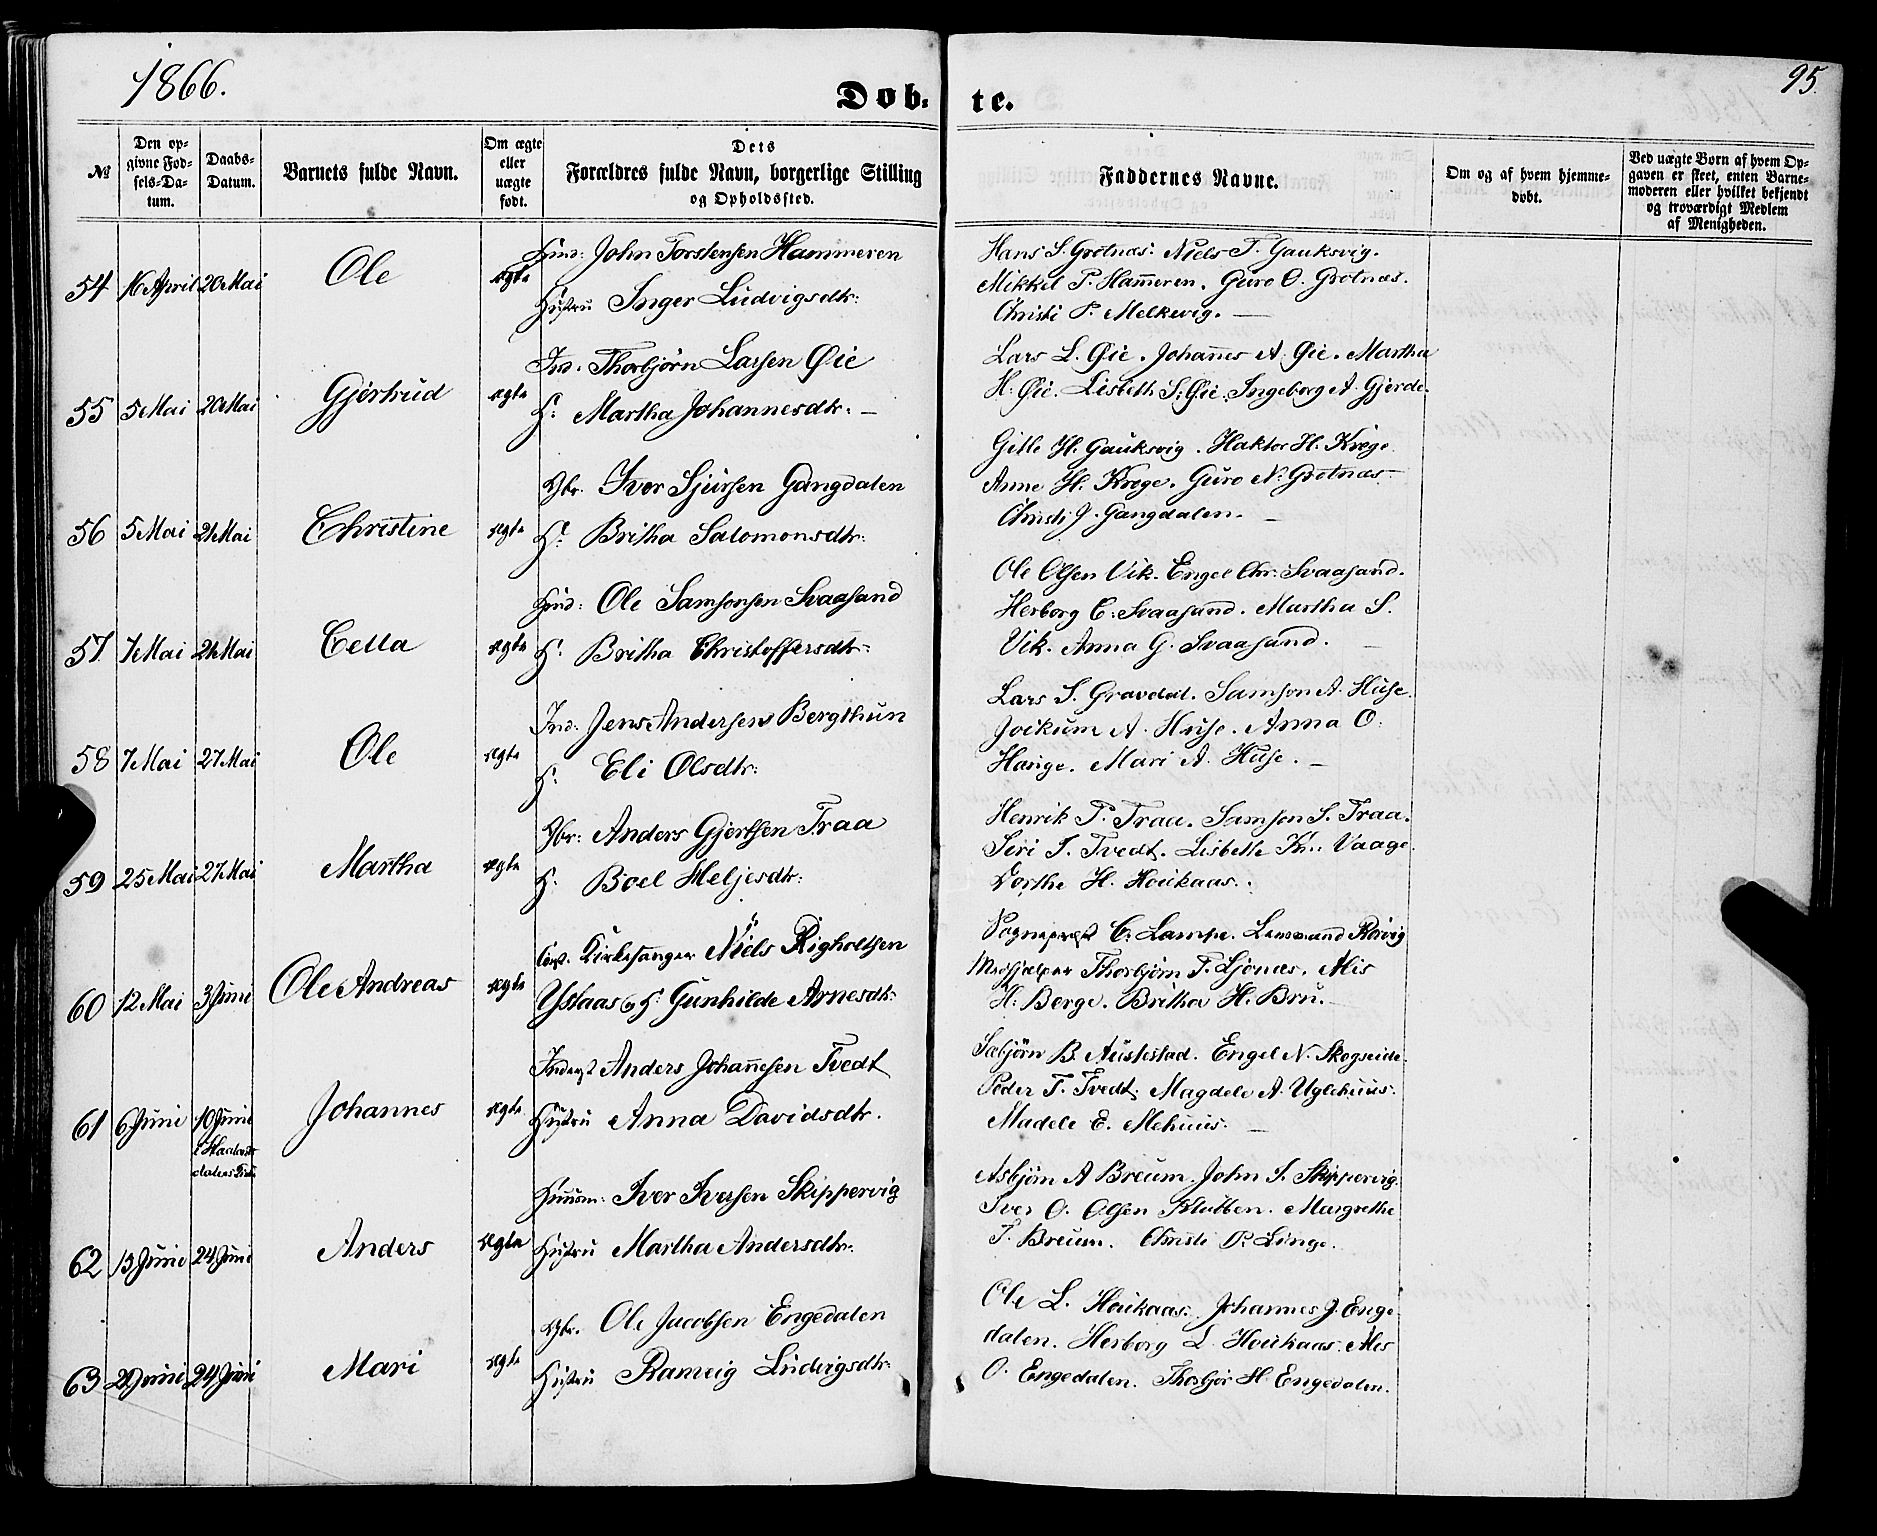 1866.
Døb-te.
95.
№
Den op-
givne Fød-
sels-Da-
tum.
Daabs-
Datum.
Barnets fulde Navn.
Om ægte
eller
uægte
født.
Dets
Forældres fulde Navn, borgerlige Stilling
og Opholdssted.
Faddernes Navne.
Om og af hvem hjemme-
døbt.
Ved uægte Børn af hvem Op-
gaven er skeet, enten Barne-
moderen eller hvilket bekjendt
og troværdigt Medlem
af Menigheden.
54 16 April 20 Mai Ole ægte
John Torstensen Hammeren
Hustru Inger Ludvigsdtr:
Hans S. Grotnæs. Niels T. Gauksvig.
Mikkel P. Hameren. Guro O. Grotnæs.
Christi P. Melkevig. —
55 5 Mai 20 Mai Gjertrud ægte
Ind. Thorbjörn Larsen Øie
H. Martha Johannesdtr. —
Lars L. Øie. Johannes A. Øie. Martha
H. Øie. Lisbeth S. Øie. Ingeborg A. Gjerde.
56 5 Mai 21 Mai Christine ægte
Gbr. Iver Sjursen Gangdalen
H. Britha Salomonsdtr:
Gitle H. Gauksvig. Haktor H. Krège
Anne H. Krege. Guro N. Grotnæs
Christi J. Gangdalen. —
57 7 Mai 21 Mai Cella ægte
Ole Samsonsen Svaasand
H. Britha Christoffersdtr:
Ole Olsen Vik. Engel Chr. Svaasand.
Herborg C. Svaasand. Martha S.
Vik. Anna G. Svaasand. —
58 7 Mai 27 Mai Ole ægte
Ind: Jens Andersens Bergthun
H. Eli Olsdtr:
Lars S. Gravdal. Samson A. Huse.
Jockum A. Huse. Anna O.
Hauge. Mari A. Huse. —
59 25 Mai 27 Mai Martha ægte
Gbr: Anders Gjertsen Traa
H. Boel Heljesdtr:
Henrik T. Traa. Samson S. Traa.
Siri T. Tvedt. Lisbeth Kn. Vaage
Dorthe H. Houkaas.
60 12 Mai 3 Juni Ole Andreas ægte
Kirkesanger Niels Righoltsen
Ystaas og H. Gunhilde Arnesdtr:
Sogneprest C. Lampe. Lensmand Rövig
Medhjælper Thorbjörn T. Ljonæs. Mis
H. Berge. Britha H. Bru. —
61 6 Juni 10 Juni
Johannes ægte
Inderst Anders Johannesen Tvedt
Hustru Anna Davidsdtr.
Sæbjörn B. Austestad. Engel N. Skogseide.
Peder T. Tvedt. Magdele A. Uglehuus.
Madele E. Mehuus. —
62 13 Juni 24 Juni Anders ægte
Huusm: Iver Iversen Skippervig
Hustru Martha Andersdtr.
Asbjörn A Breum. John S. Skippervig.
Iver O. Olsen Klubben. Margrethe
T. Breum. Christi P. Linge.
63 21 Juni 24 Juni Mari ægte
Gbr. Ole Jacobsen Engedalen
Hustru Rameig Ludvigsdtr:
Ole L. Houkaas. Johannes J. Enge-
dalen. Herborg L. Houkaas. Mis
O. Engedalen. Thorbjör H. Engedalen.